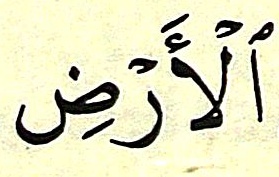 ٱلۡأَرۡضِ